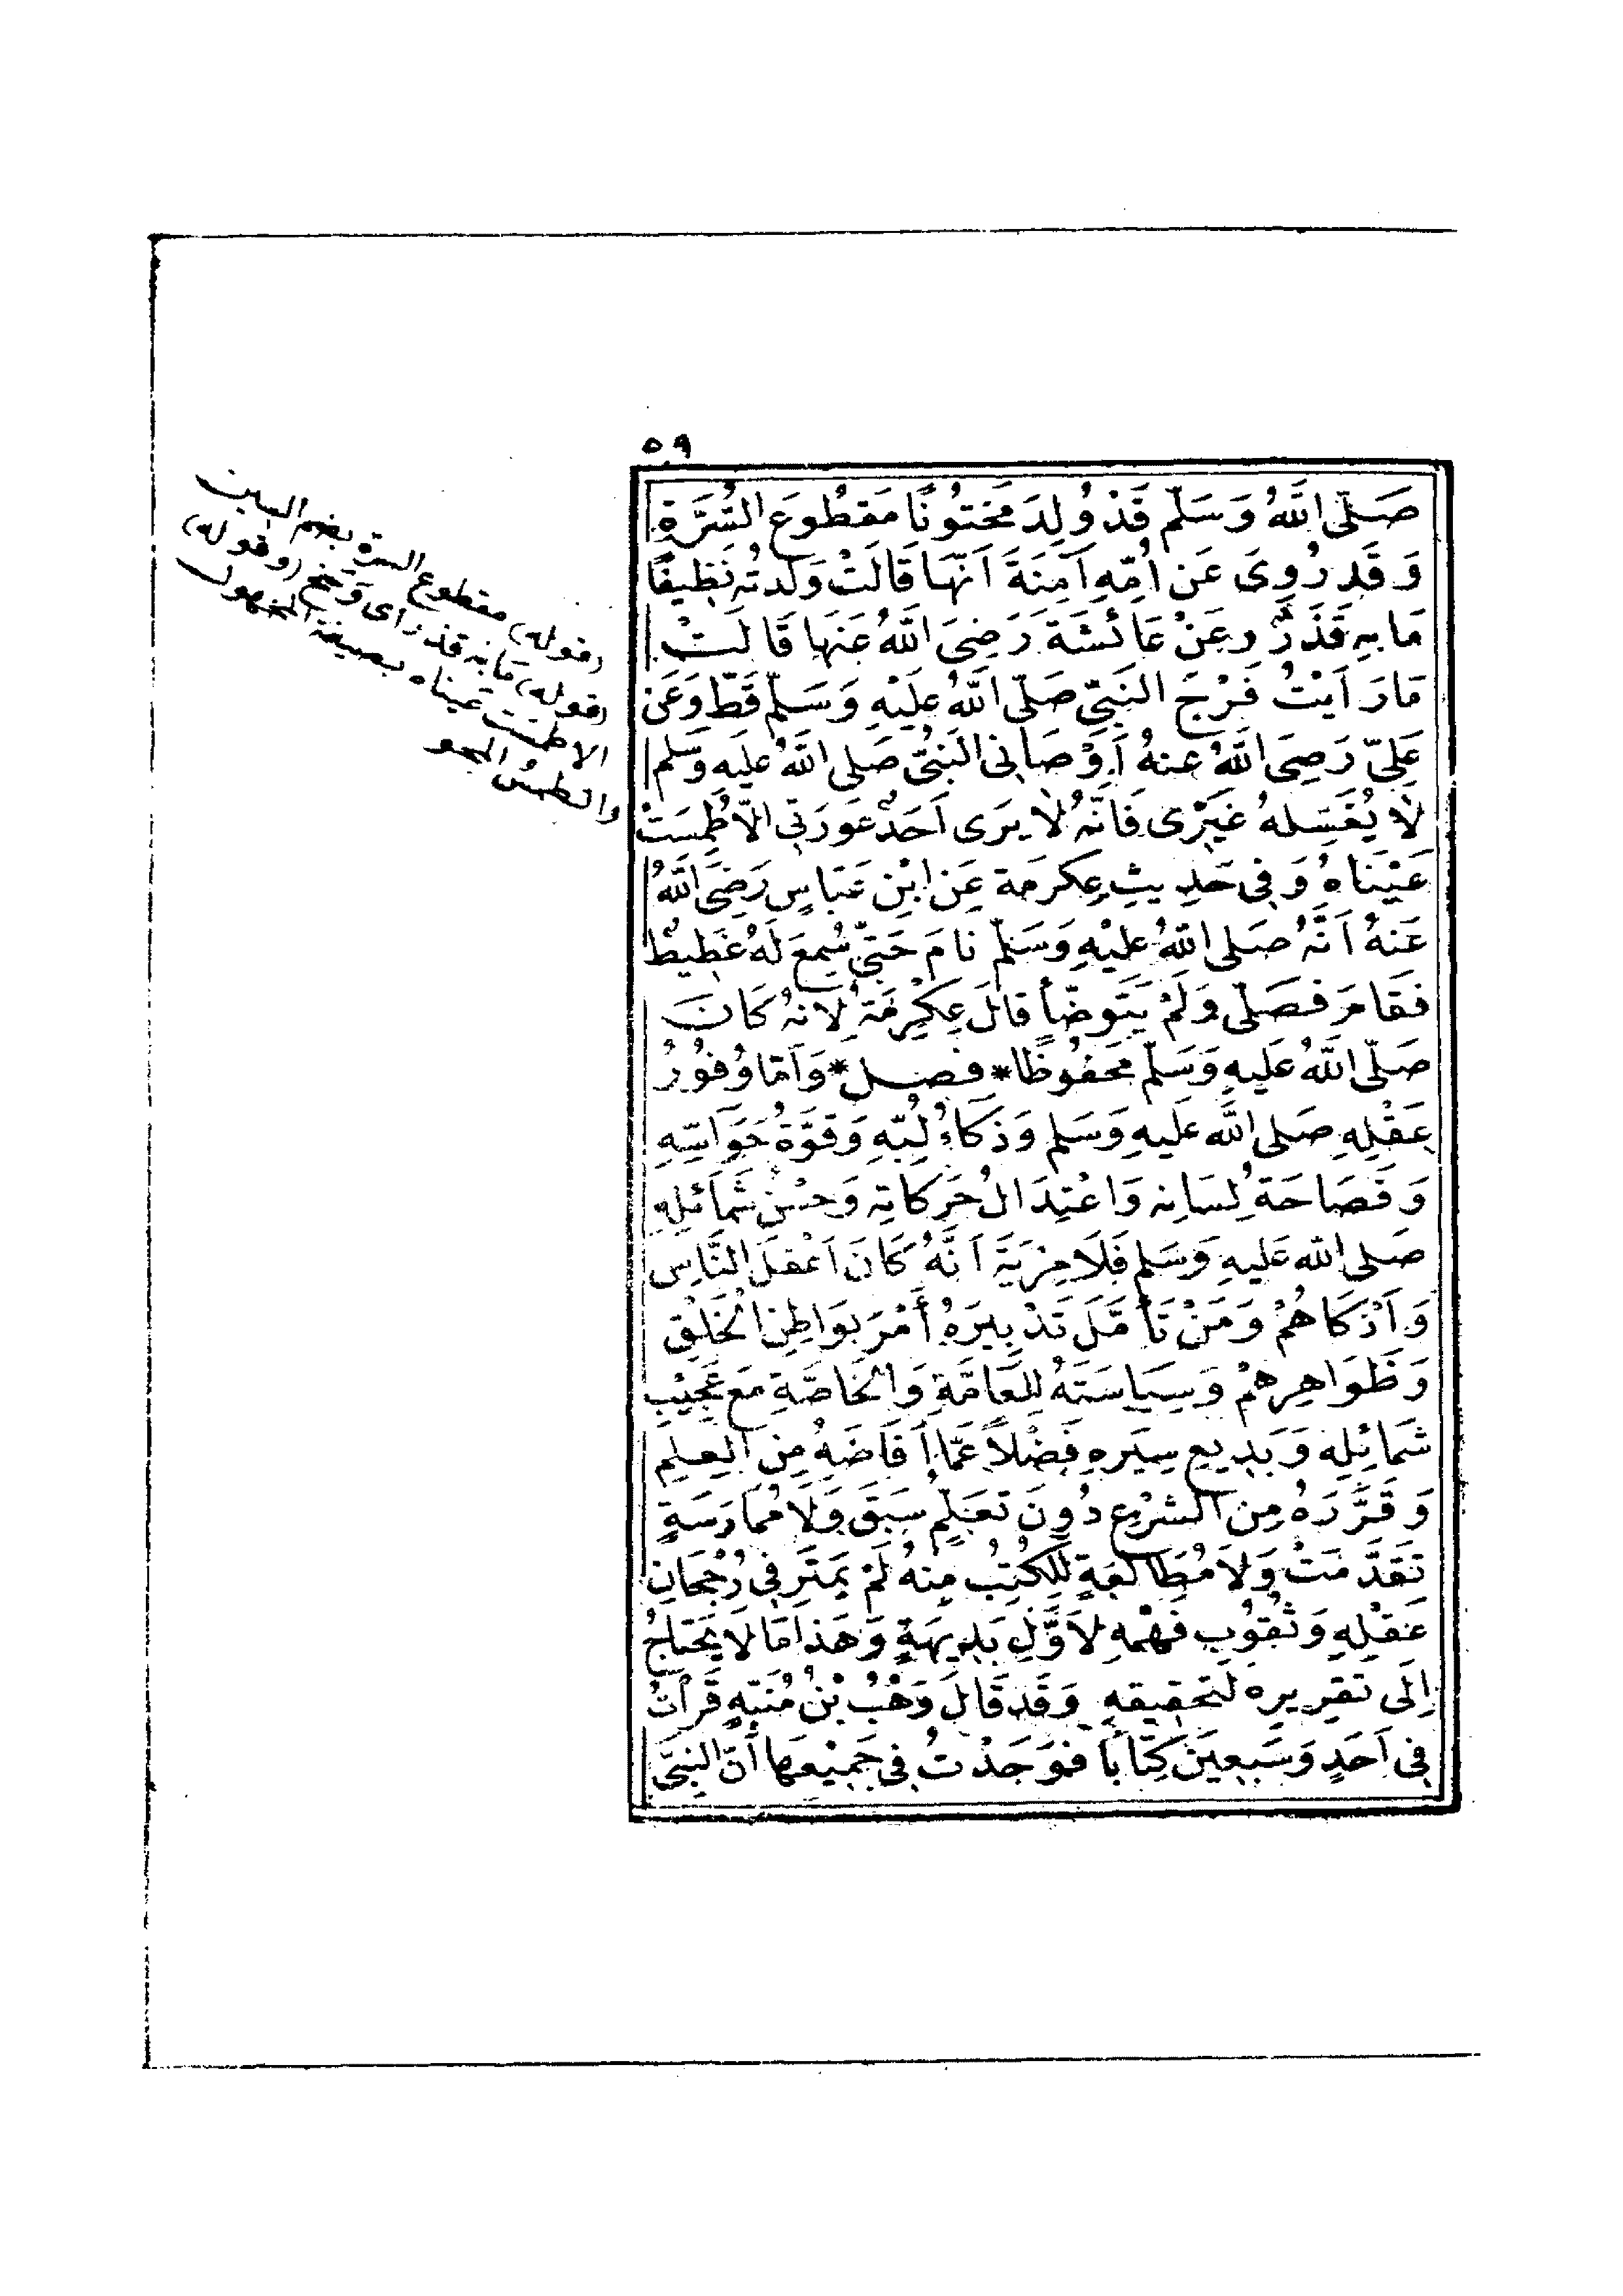 ٥٩
صَلَّى اللَّهُ وَسَلَّمَ قَدْ وُلِدَ مَخْتُونًا مَقْطُوعَ السُّرَّةِ
وَقَدْ رُوِىَ عَنْ اُمِّهِ آمِنَةَ اَنَّهَا قَالَتْ وَلَدتُهُ نَظِيفًا
مَا بِهِ قَذَرٌ وعَنْ عَائشَةَ رَضِىَ اللَّهُ عَنْهَا قَالَتْ
مَا رَاَيْتُ فَرْجَ النَّبِىِّ صَلَّى اللَّهُ عَلَيْهِ وَسَلَّمَ قَطُّ وَعَنْ
عَلِىٍّ رَضِىَ اللَّهُ عَنهُ اَوْصَانِى النَّبِىُّ صَلى اللَّهُ عَليهِ وَسَلم
لَا يُغَسِّلهُ غَيْرِى فَاِنَّهُ لَا يَرَى اَحَدٌ عَوْرَتِى اِلَّا طُمِسَتْ
عَيْنَاهُ وَفِى حَدِيثِ عِكرِمَة عَنِ ابْنِ عَبَّاسٍ رَضِىَ اللَّهُ
عَنهُ اَنَّهُ صَلى اللَّهُ عَليْهِ وَسَلَّمَ نَامَ حَتَّى سُمِعَ لَهُ غَطِيطٌ
فَقَامَ فَصَلَّى وَلَمْ يَتَوضَّأ قالَ عِكْرِمَةُ لِاَنَّهُ كَانَ
صَلَّى اللَّهُ عَلَيهِ وَسَلَّمَ مَحْفُوظًا * فصل * وَاَمَّا وُفُورُ
عَقْلِهِ صَلى اللَّه عَلَيهِ وَسَلم وَذَكَاءُ لُبِّهِ وَقوَّةُ حَوَاسِّهِ
وَفَصَاحَةُ لِسَانِه وَاعْتِدَالُ حَرَكَاتِه وَحسْنُ شَمَائلِهِ
صَلى الله عَليهِ وَسَلم فَلَا مِرْيَةَ اَنَّهُ كَانَ اَعْقَلَ النَّاسِ
وَاَذْكَاهُمْ وَمَنْ تَأَمَّلَ تَدْبِيرَهُ أَمْرَ بَوَاطِنِ الْخَلْقِ
وَظَوَاهِرِهمْ وَسِيَاسَتَهُ لِلْعَامَّةِ وَالْخَاصَّةِ مَعَ عَجِيْبِ
شَمَائِلِه وَبَدِيعِ سِيَرِهِ فَضْلاً عَمَّا اَفَاضَهُ مِنَ العِلمِ
وَقَرَّرَهُ مِنَ الشَّرْعِ دُونَ تَعَلُّمٍ سَبَقَ وَلَا مُمَارَسَةٍ
تَقَدَّمَتْ وَلَا مُطَالَعَةٍ لِلْكُتُبِ مِنهُ لَمْ يَمْتَرِ فِى رُجْحَانِ
عَقْلِهِ وَثُقُوبِ فَهْمِهِ لِاَوَّلِ بَدِيهَةٍ وَهَذا مَا لَا يَحْتَاجُ
اِلَى تَقْرِيرِه لِتَحْقِيقِهِ وَقَد قَالَ وَهْبُ بْنُ مُنَبِّهٍ قَرَأْتُ
فِى اَحَدٍ وَسَبعِينَ كِتَابًا فَوَجَدْتُ فِى جَمِيْعِهَا أَنَّ النَّبِىَّ
(قوله) مقطوع السرة بضم السين
(قوله) مَا به قذر اى وَسَخ (وقوله)
الا طمست عيناه بصيغة المجهول
والطمس المحو